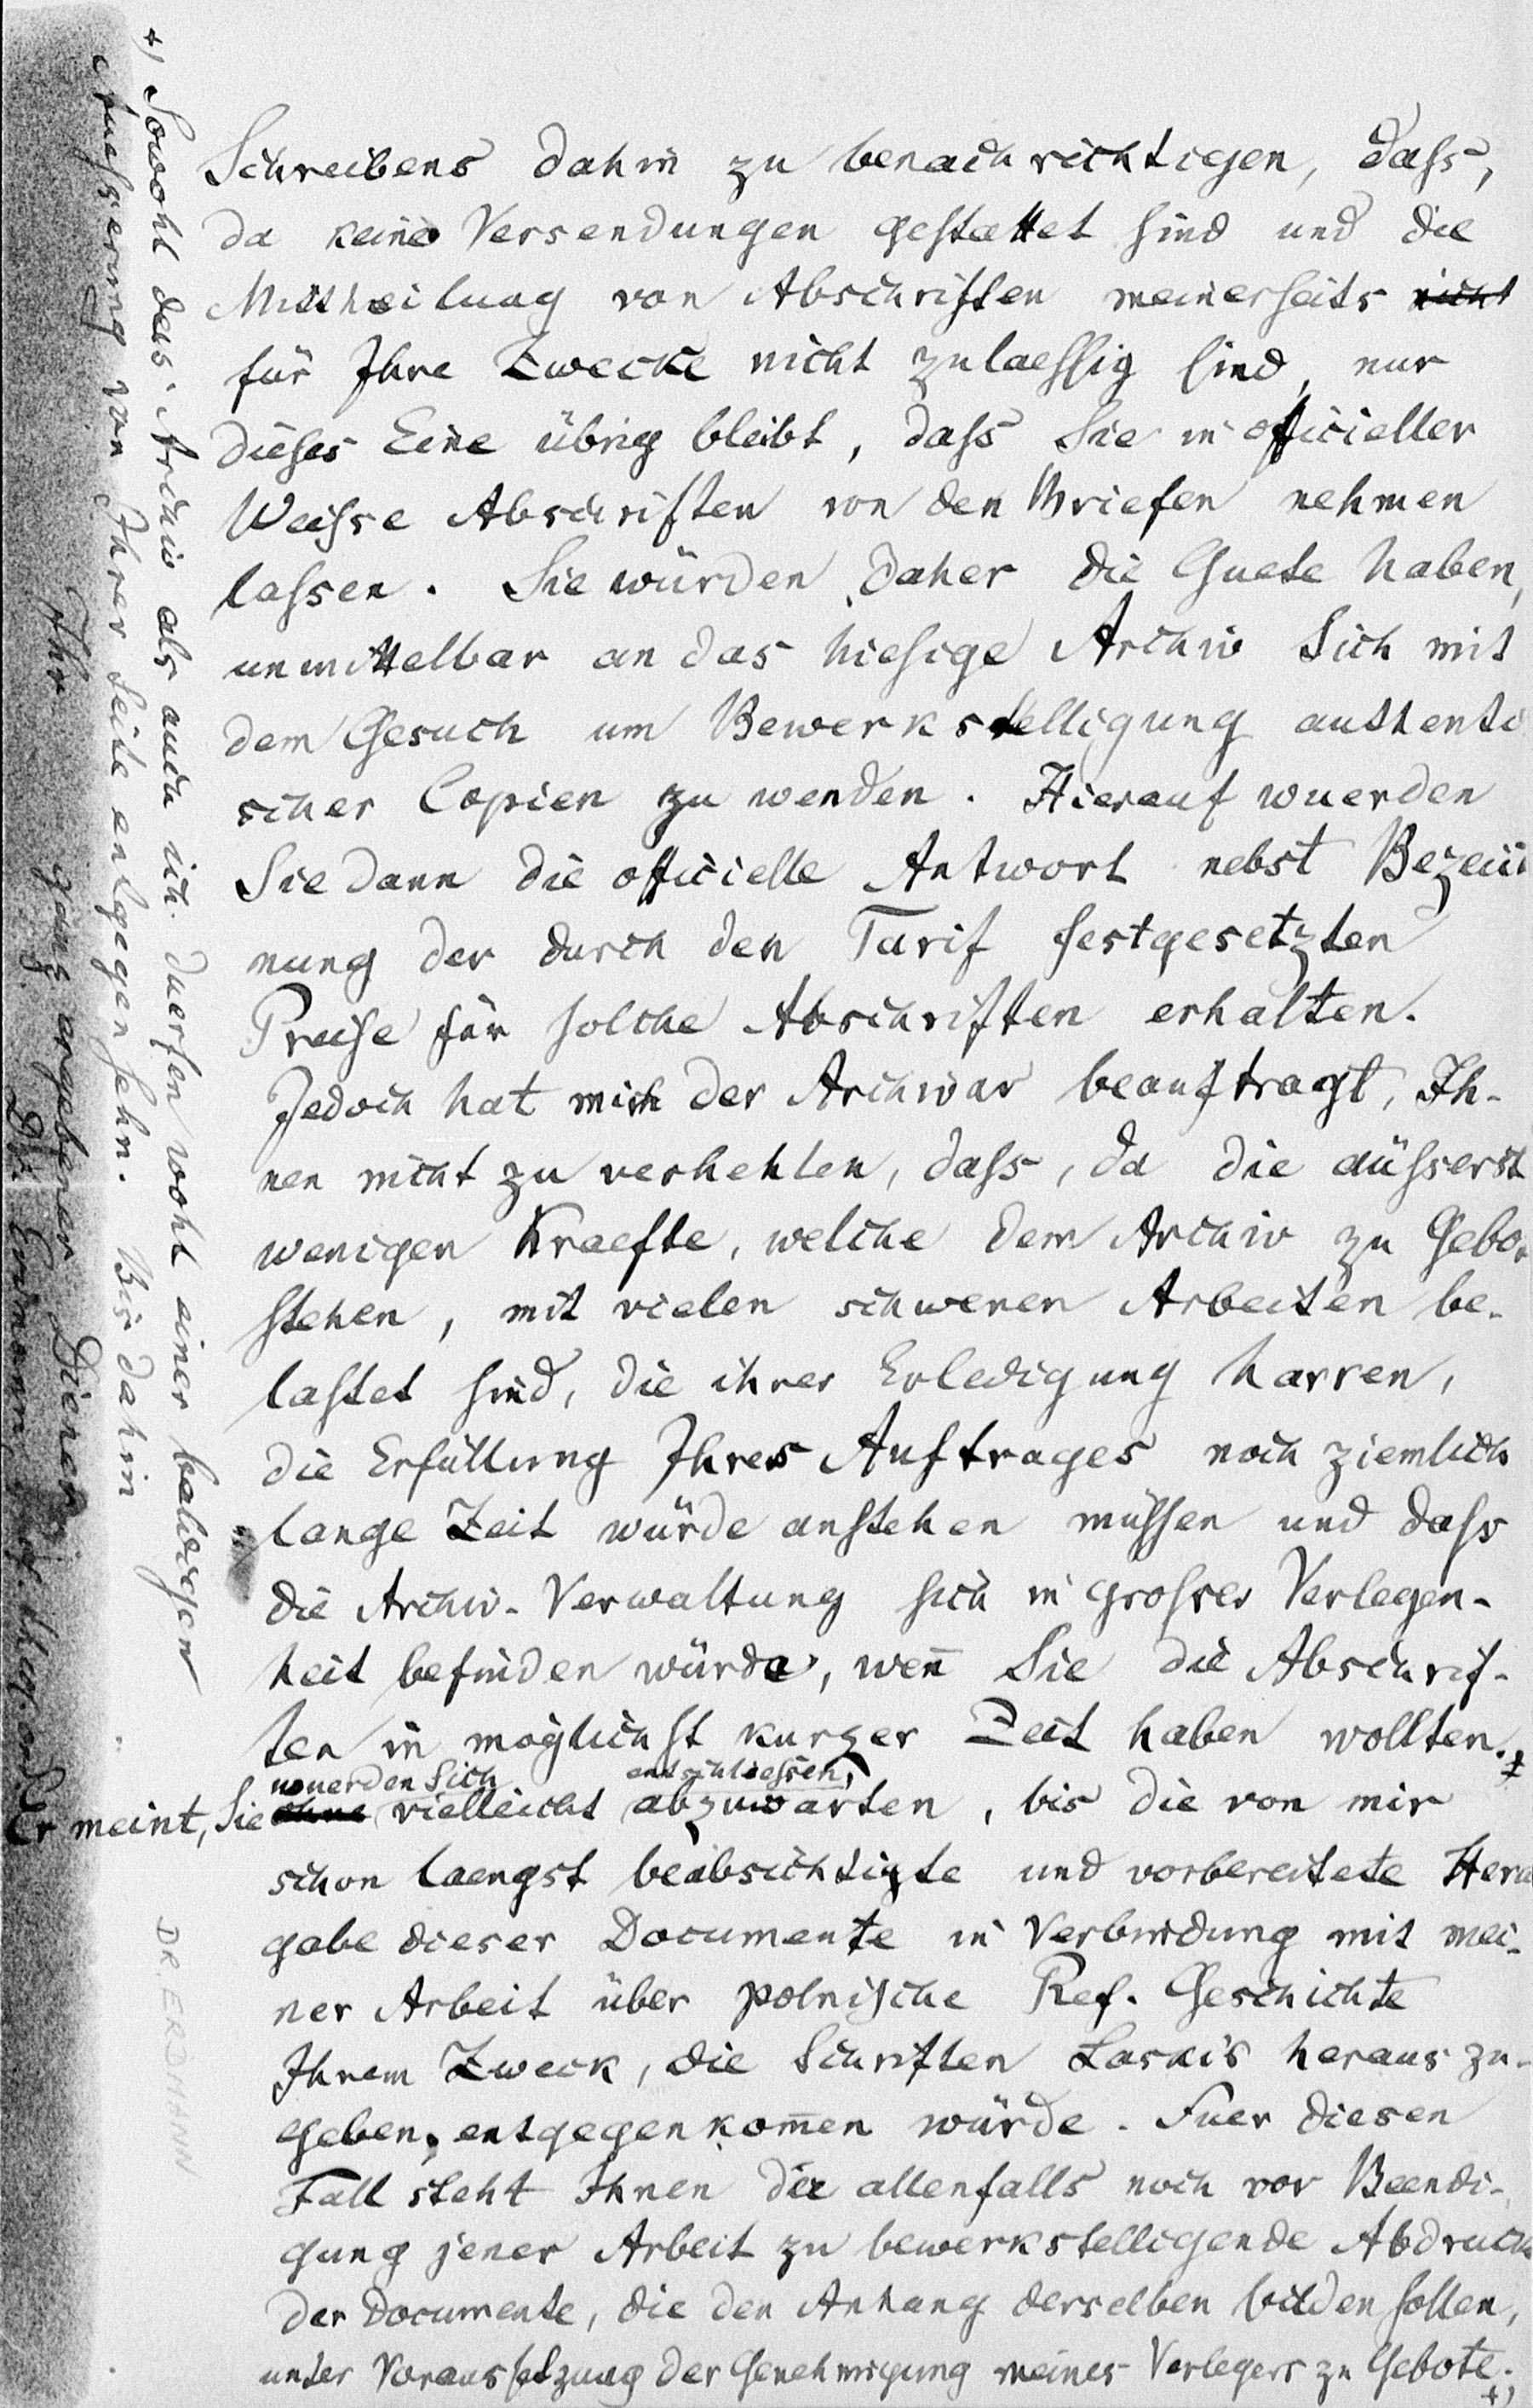 Schreibens dahin zu benachrichtigen, dass,
da keine Versendungen gestattet sind und die
Mittheilung von Abschriften meinerseits nicht
für Ihre Zwecke nicht zulaessig sind, nur
dieses Eine übrig bleibt, dass Sie in officieller
Weisse Abschriften von den Briefen nehmen
lassen. Sie würden daher die Guete haben,
unmittelbar an das hiesige Archiv Sich mit
dem Gesuch um Bewerkstelligung authenti
scher Copien zu wenden. Hierauf wuerden
Sie dann die officielle Antwort nebst Bezeich
nung der durch den Tarif festgesetzten
Preise für solche Abschriften erhalten.
Jedoch hat mich der Archivar beauftragt, Ih-
nen nicht zu verhehlen, dass, da die äusserst
wenigen Kraefte, welche dem Archiv zu Gebo
stehen, mit vielen schweren Arbeiten be-
lastet sind, die ihrer Erledigung harren,
die Erfüllung Ihres Auftrages noch ziemlich
lange Zeit würde anstehen müssen und dass
die Archiv-Verwaltung sich in grosser Verlegen-
heit befinden würde, wen̄ Sie die Abschrif-
ten in möglichst kurzer Zeit haben wollten.
wuerden Sich entschliessen,
Er meint, Sie ohne vielleicht abzuwarten, bis die von mir
schon laengst beabsichtigte und vorbereitete Hera
gabe dieser Documente in Verbindung mit mei-
ner Arbeit über polnische Ref. Geschichte
Ihrem Zweck, die Schriften Laski's heraus zu-
geben, entgegenkom̄en würde. Fuer diesen
Fall steht Ihnen die allenfalls noch vor Beendi-
gung jener Arbeit zu bewerkstelligende Abdruck
der Documente, die den Anhang derselben bilden sollen,
unter Voraussetzung der Genehmigung meines Verlegers zu Gebote. +)
+) Sowohl das Archiv als auch ich duerfen wohl einer baldigen
Aeusserung von Ihrer Seite entgegen sehn. Bis dahin
Ihr ganz ergebener Diener
Dr. Erdmann
DR. ERDMANN